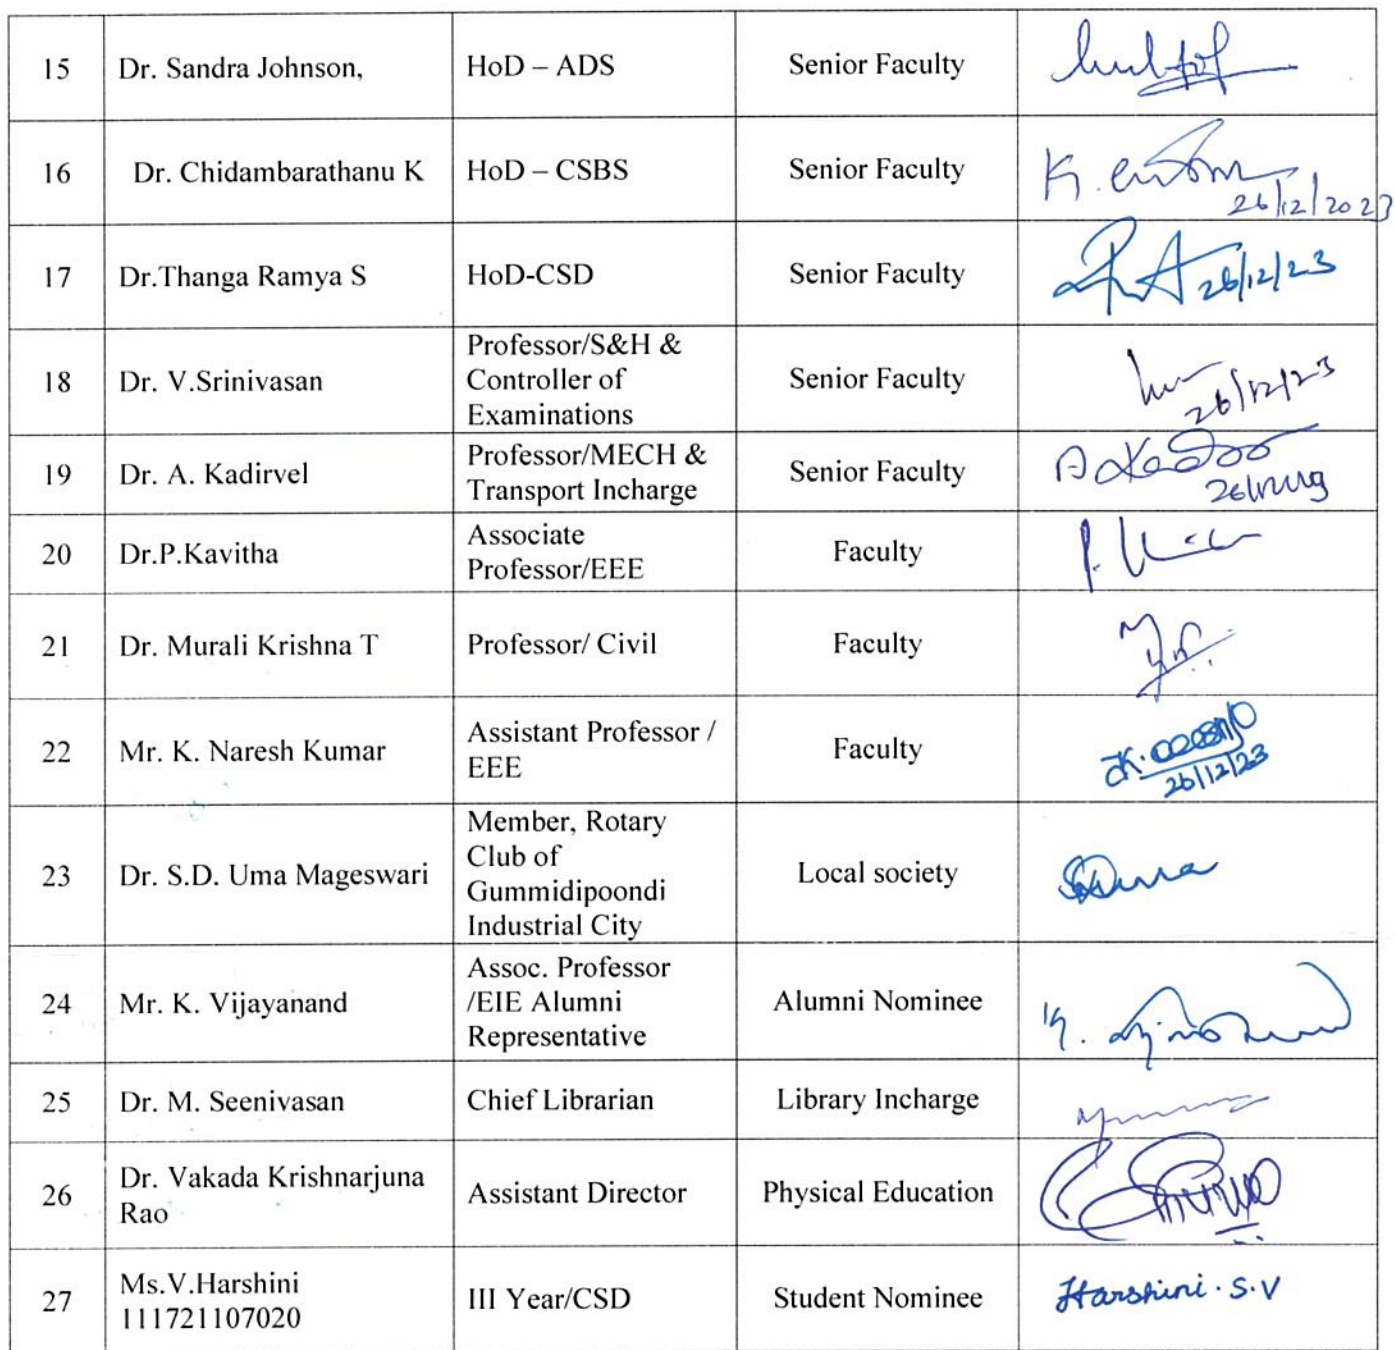 15 Dr. Sandra Johnson, HoD – ADS Senior Faculty
16 Dr. Chidambarathanu K HoD – CSBS Senior Faculty
26/12/2023
17 Dr.Thanga Ramya S HoD-CSD Senior Faculty 26/12/23
18 Dr. V.Srinivasan Professor/S&H &
Controller of
Examinations Senior Faculty
26/12/23
19 Dr. A. Kadirvel Professor/MECH &
Transport Incharge Senior Faculty
20 Dr.P.Kavitha Associate
Professor/EEE Faculty
21 Dr. Murali Krishna T Professor/ Civil Faculty
22 Mr. K. Naresh Kumar Assistant Professor /
EEE Faculty
26/12/23
23 Dr. S.D. Uma Mageswari Member, Rotary
Club of
Gummidipoondi
Industrial City Local society
24 Mr. K. Vijayanand Assoc. Professor
/EIE Alumni
Representative Alumni Nominee
25 Dr. M. Seenivasan Chief Librarian Library Incharge
26 Dr. Vakada Krishnarjuna
Rao Assistant Director Physical Education
27 Ms.V.Harshini
111721107020 III Year/CSD Student Nominee Harshini.S.V